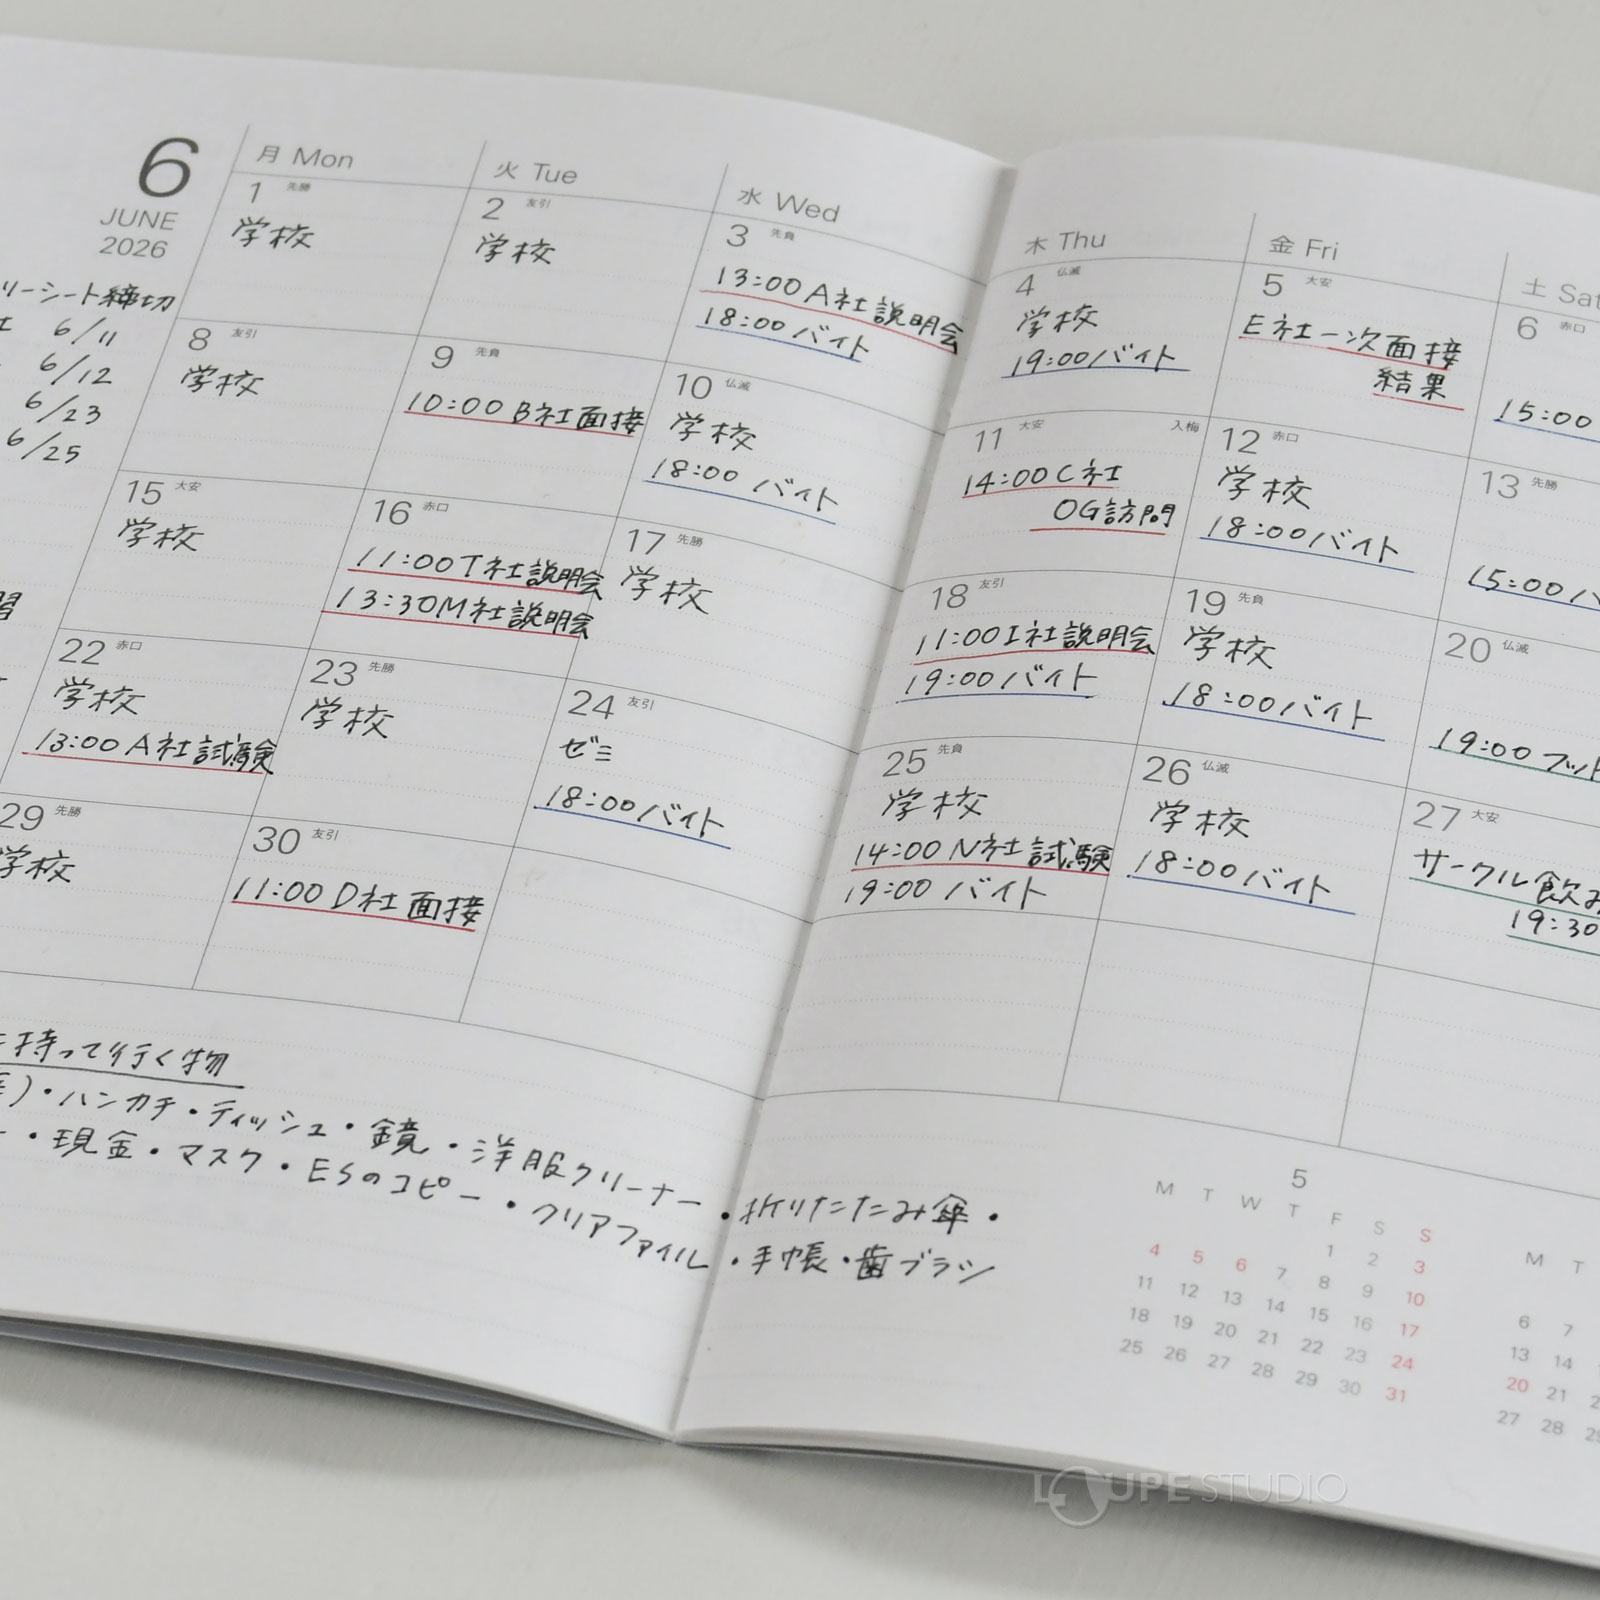 6
JUNE
2026
月 Mon
火 Tue
水 Wed
木 Thu
金 Fri
土 Sat
リーシート締切
6/11
6/12
6/23
6/25
1 先勝
学校
2 友引
学校
3 先負
13:00 A社説明会
18:00 バイト
4 仏滅
学校
19:00 バイト
5 大安
E社一次面接
結果
6 赤口
15:00
8 友引
学校
9 先負
10:00 B社面接
10 仏滅
学校
18:00 バイト
11 大安 入梅
14:00 C社
OG訪問
12 赤口
学校
18:00 バイト
13 先勝
15:00
15 大安
学校
16 赤口
11:00 T社説明会
13:30 M社説明会
17 先勝
学校
18 友引
11:00 I社説明会
19:00 バイト
19 先負
学校
18:00 バイト
20 仏滅
19:00 フット
22 赤口
学校
13:00 A社試験
23 先勝
学校
24 友引
ゼミ
18:00 バイト
25 先負
学校
14:00 N社試験
19:00 バイト
26 仏滅
学校
18:00 バイト
27 大安
サークル飲み
19:30
29 先勝
学校
30 友引
11:00 D社面接
持って行く物
・ハンカチ・ティッシュ・鏡・洋服クリーナー・折りたたみ傘・
・現金・マスク・ESのコピー・クリアファイル・手帳・歯ブラシ
5
M T W T F S S
1 2 3
4 5 6 7 8 9 10
11 12 13 14 15 16 17
18 19 20 21 22 23 24
25 26 27 28 29 30 31
M T
6 7
13 14
20 21
27 28
LOUPE STUDIO